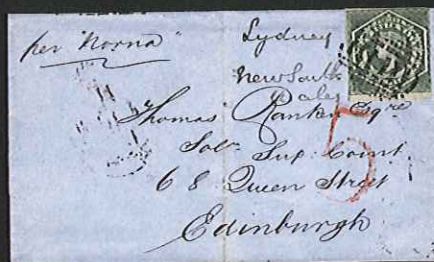 per "Norna"
Sydney
New South
Wales
Thomas Ranken Esqre
Solr Sup Court
68 Queen Street
Edinburgh
5